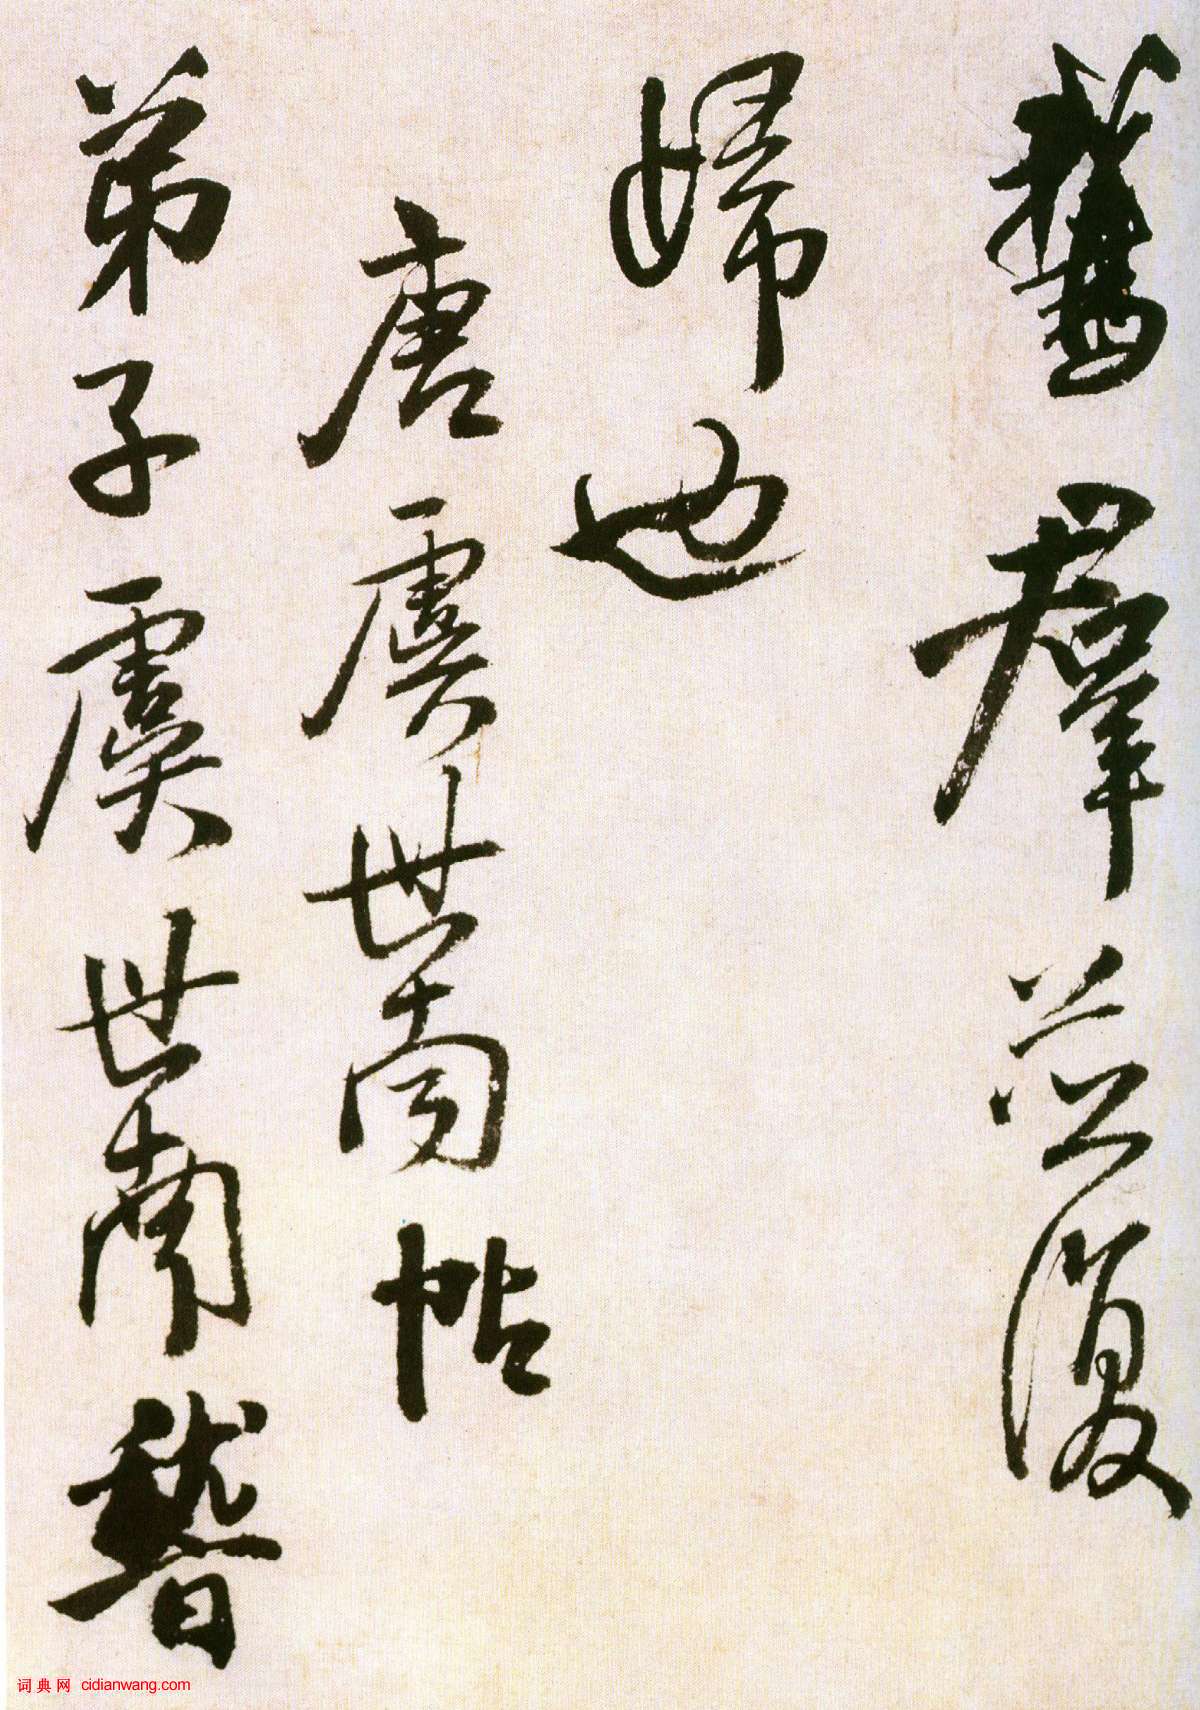 鵞群並復
歸也
唐虞世南帖
弟子虞世南稽
词典网 cidianwang.com